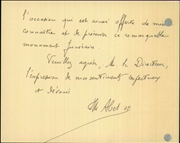 l'occasion qui est ainsi offerte de mieux
connaître et de préserver ce remarquable
monument funéraire
Veuillez agréer, M. le Directeur,
l'expression de mes sentiments respectueux
et dévoués